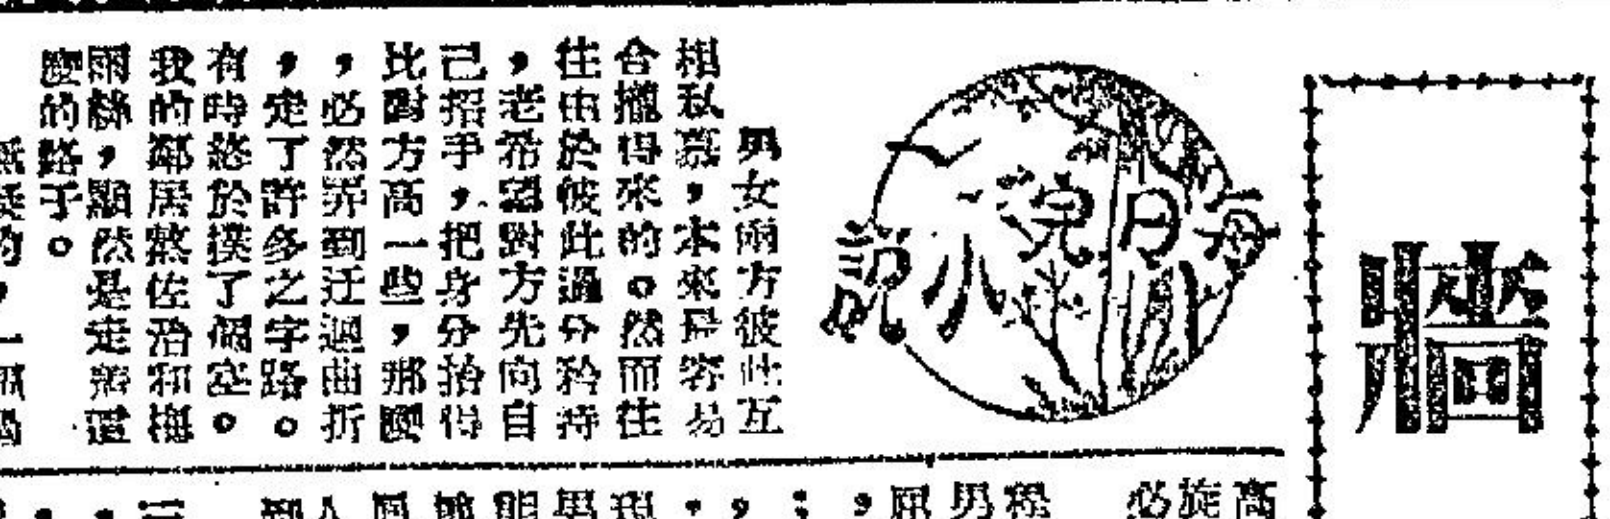 牆
每日完小說
男女兩方彼此互
相私慕，本來是容易
合攏得來的。然而往
往由於彼此過分矜持
，老希望對方先向自
己招手，把身分抬得
比對方高一些，那麼
，必然弄到迂迴曲折
，定了許多之字路。
有時終於撲了個空。
我的鄰居熬佐治和梅
雨絲，顯然是走着這
麼的路子。
高
旋
必
男